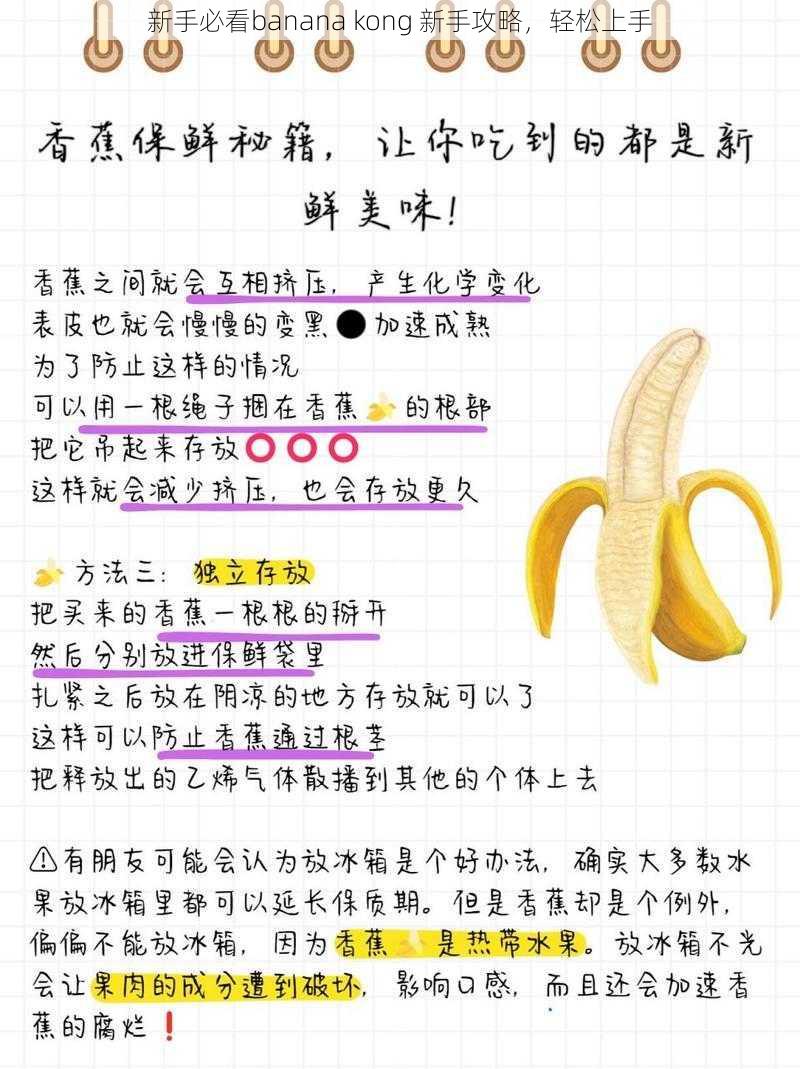 新手必看banana kong 新手攻略，轻松上手
香蕉保鲜秘籍，让你吃到的都是新
鲜美味！
香蕉之间就会互相挤压，产生化学变化
表皮也就会慢慢的变黑⚫加速成熟
为了防止这样的情况
可以用一根绳子捆在香蕉🍌的根部
把它吊起来存放⭕⭕⭕
这样就会减少挤压，也会存放更久
🍌方法三：独立存放
把买来的香蕉一根根的掰开
然后分别放进保鲜袋里
扎紧之后放在阴凉的地方存放就可以了
这样可以防止香蕉通过根茎
把释放出的乙烯气体散播到其他的个体上去
⚠有朋友可能会认为放冰箱是个好办法，确实大多数水
果放冰箱里都可以延长保质期。但是香蕉却是个例外，
偏偏不能放冰箱，因为香蕉🍌是热带水果。放冰箱不光
会让果肉的成分遭到破坏，影响口感，而且还会加速香
蕉的腐烂❗